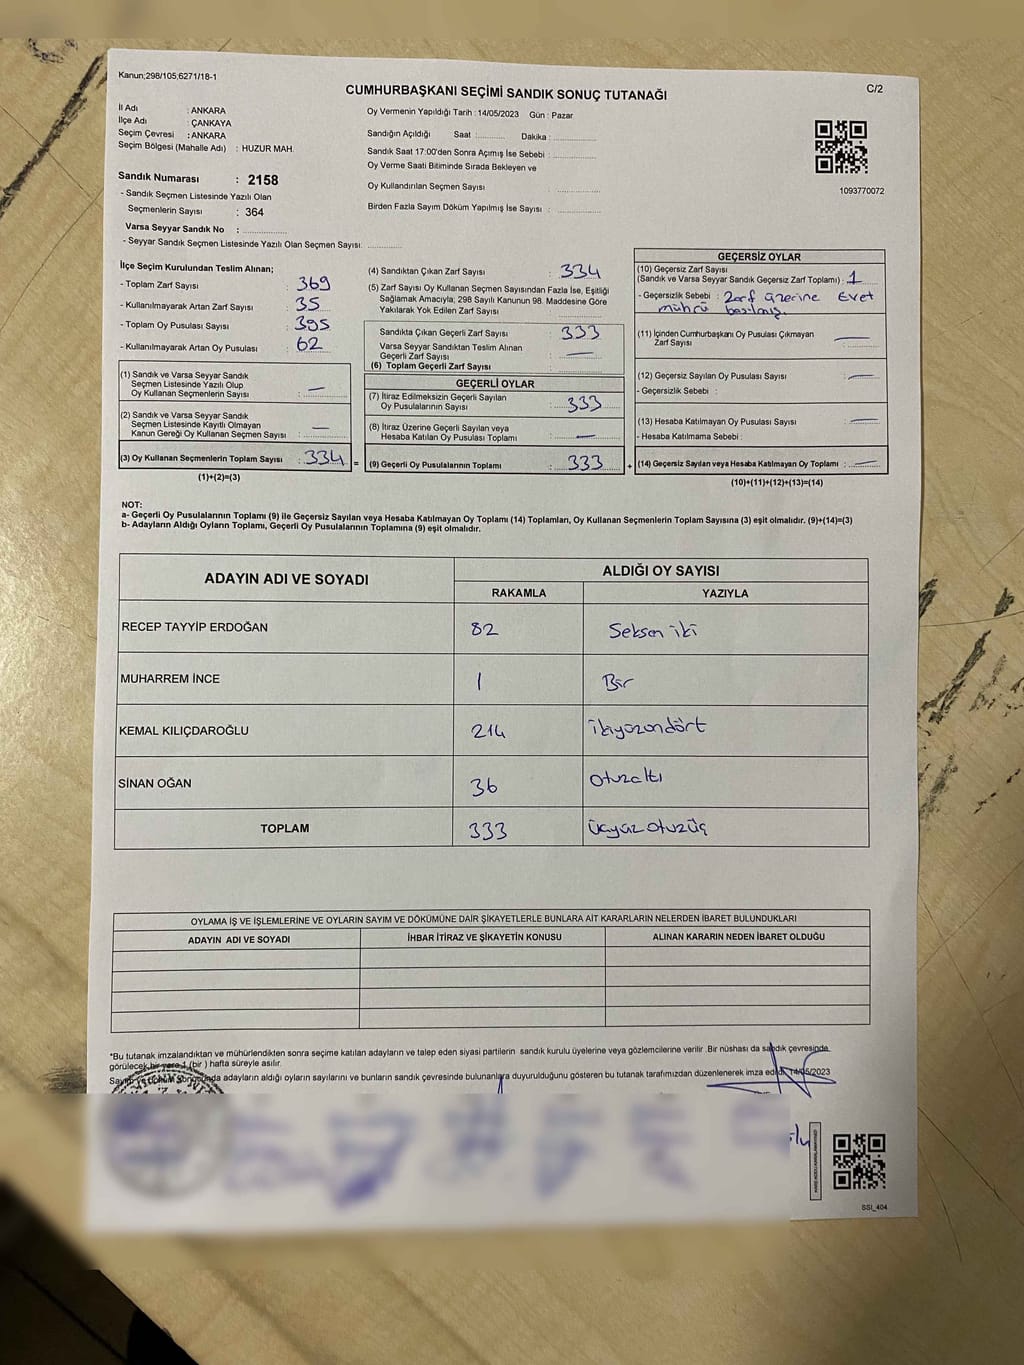 Kanun;298/105;6271/18-1
C/2
CUMHURBAŞKANI SEÇİMİ SANDIK SONUÇ TUTANAĞI
İl Adı : ANKARA
İlçe Adı : ÇANKAYA
Seçim Çevresi : ANKARA
Seçim Bölgesi (Mahalle Adı) : HUZUR MAH.
Sandık Numarası : 2158
- Sandık Seçmen Listesinde Yazılı Olan
Seçmenlerin Sayısı : 364
Varsa Seyyar Sandık No :
- Seyyar Sandık Seçmen Listesinde Yazılı Olan Seçmen Sayısı:
Oy Vermenin Yapıldığı Tarih : 14/05/2023 Gün : Pazar
Sandığın Açıldığı Saat : Dakika :
Sandık Saat 17:00'den Sonra Açımış İse Sebebi :
Oy Verme Saati Bitiminde Sırada Bekleyen ve
Oy Kullandırılan Seçmen Sayısı :
Birden Fazla Sayım Döküm Yapılmış İse Sayısı :
1093770072
İlçe Seçim Kurulundan Teslim Alınan;
- Toplam Zarf Sayısı : 369
- Kullanılmayarak Artan Zarf Sayısı : 35
- Toplam Oy Pusulası Sayısı : 395
- Kullanılmayarak Artan Oy Pusulası : 62
(1) Sandık ve Varsa Seyyar Sandık
Seçmen Listesinde Yazılı Olup
Oy Kullanan Seçmenlerin Sayısı : —
(2) Sandık ve Varsa Seyyar Sandık
Seçmen Listesinde Kayıtlı Olmayan
Kanun Gereği Oy Kullanan Seçmen Sayısı : —
(3) Oy Kullanan Seçmenlerin Toplam Sayısı : 334
(1)+(2)=(3)
=
(4) Sandıktan Çıkan Zarf Sayısı : 334
(5) Zarf Sayısı Oy Kullanan Seçmen Sayısından Fazla İse, Eşitliği
Sağlamak Amacıyla; 298 Sayılı Kanunun 98. Maddesine Göre
Yakılarak Yok Edilen Zarf Sayısı
Sandıkta Çıkan Geçerli Zarf Sayısı : 333
Varsa Seyyar Sandıktan Teslim Alınan
Geçerli Zarf Sayısı : —
(6) Toplam Geçerli Zarf Sayısı :
GEÇERLİ OYLAR
(7) İtiraz Edilmeksizin Geçerli Sayılan
Oy Pusulalarının Sayısı : 333
(8) İtiraz Üzerine Geçerli Sayılan veya
Hesaba Katılan Oy Pusulası Toplamı : —
(9) Geçerli Oy Pusulalarının Toplamı : 333
+
GEÇERSİZ OYLAR
(10) Geçersiz Zarf Sayısı
(Sandık ve Varsa Seyyar Sandık Geçersiz Zarf Toplamı) : 1
- Geçersizlik Sebebi : Zarf üzerine Evet
mührü basılmış.
(11) İçinden Cumhurbaşkanı Oy Pusulası Çıkmayan
Zarf Sayısı : —
(12) Geçersiz Sayılan Oy Pusulası Sayısı : —
- Geçersizlik Sebebi :
(13) Hesaba Katılmayan Oy Pusulası Sayısı : —
- Hesaba Katılmama Sebebi :
(14) Geçersiz Sayılan veya Hesaba Katılmayan Oy Toplamı : —
(10)+(11)+(12)+(13)=(14)
NOT:
a- Geçerli Oy Pusulalarının Toplamı (9) ile Geçersiz Sayılan veya Hesaba Katılmayan Oy Toplamı (14) Toplamları, Oy Kullanan Seçmenlerin Toplam Sayısına (3) eşit olmalıdır. (9)+(14)=(3)
b- Adayların Aldığı Oyların Toplamı, Geçerli Oy Pusulalarının Toplamına (9) eşit olmalıdır.
ADAYIN ADI VE SOYADI
ALDIĞI OY SAYISI
RAKAMLA YAZIYLA
RECEP TAYYİP ERDOĞAN 82 Seksen iki
MUHARREM İNCE 1 Bir
KEMAL KILIÇDAROĞLU 214 ikiyüzondört
SİNAN OĞAN 36 otuzaltı
TOPLAM 333 üçyüz otuzüç
OYLAMA İŞ VE İŞLEMLERİNE VE OYLARIN SAYIM VE DÖKÜMÜNE DAİR ŞİKAYETLERLE BUNLARA AİT KARARLARIN NELERDEN İBARET BULUNDUKLARI
ADAYIN ADI VE SOYADI İHBAR İTİRAZ VE ŞİKAYETİN KONUSU ALINAN KARARIN NEDEN İBARET OLDUĞU
*Bu tutanak imzalandıktan ve mühürlendikten sonra seçime katılan adayların ve talep eden siyasi partilerin sandık kurulu üyelerine veya gözlemcilerine verilir. Bir nüshası da sandık çevresinde
görülecek bir yere 1 (bir) hafta süreyle asılır.
adayların aldığı oyların sayılarını ve bunların sandık çevresinde bulunanlara duyurulduğunu gösteren bu tutanak tarafımızdan düzenlenerek imza edildi. 14/05/2023
SSI_404